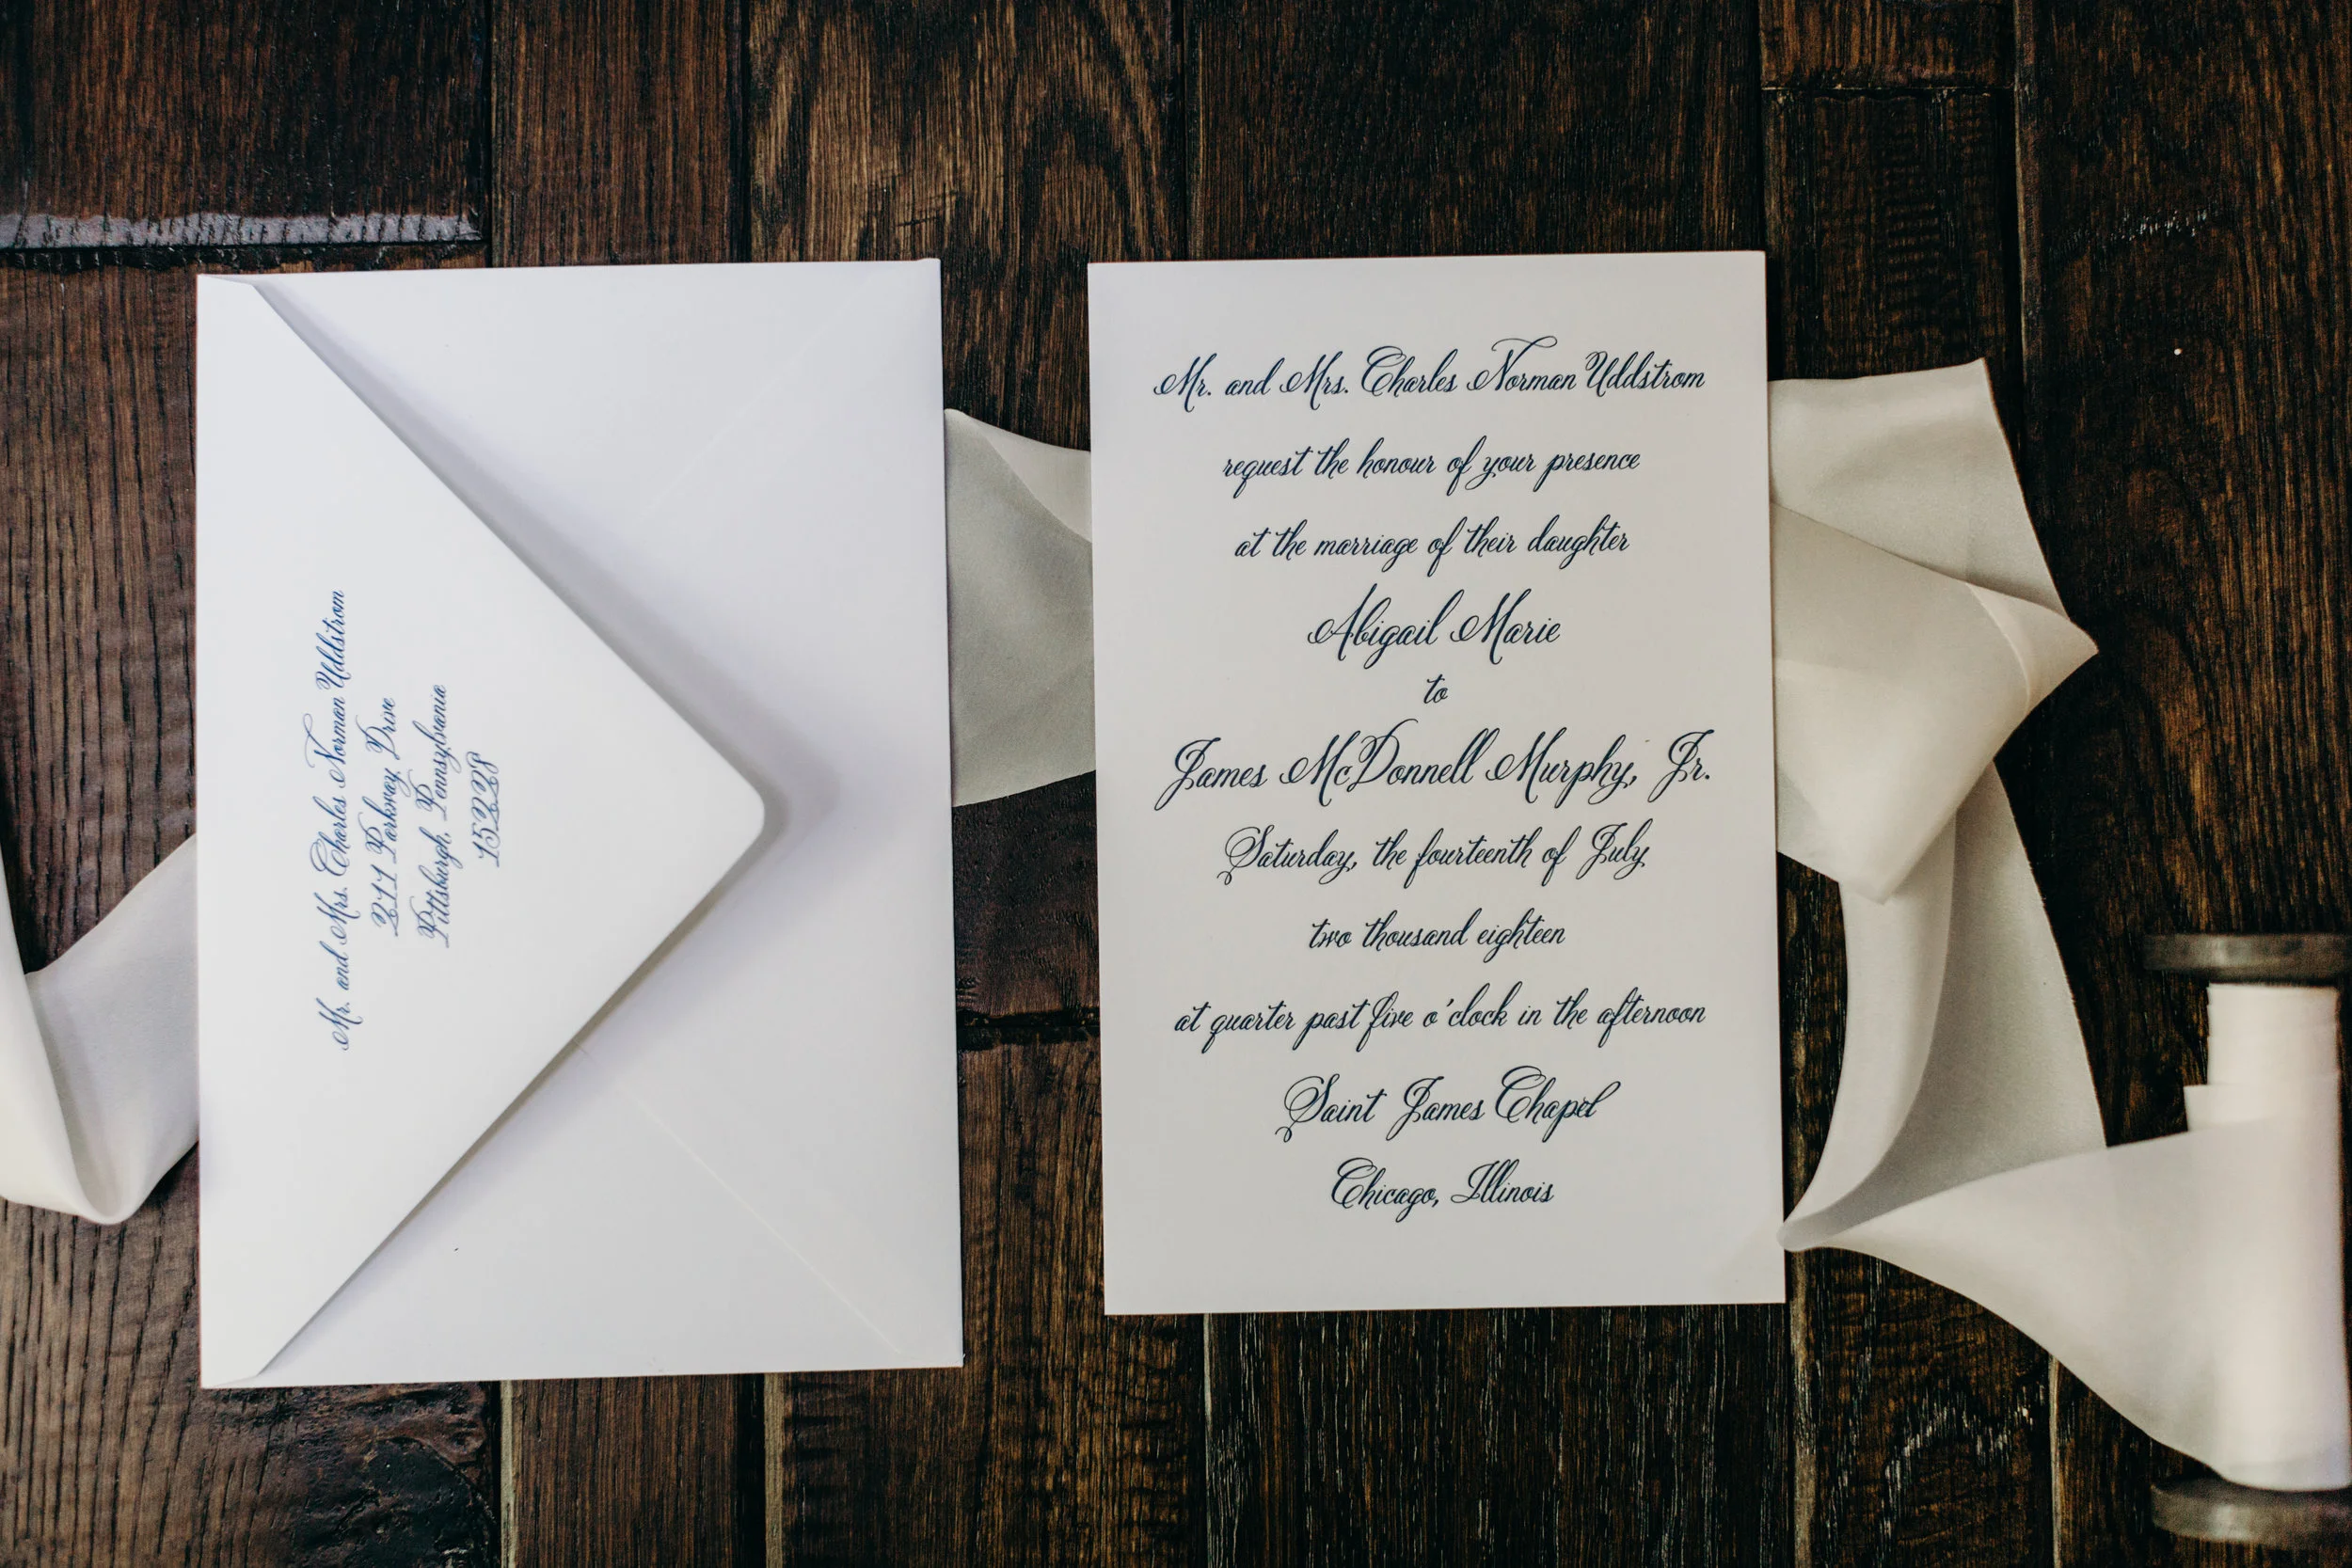 Mr. and Mrs. Charles Norman Uddstrom
211 Parkway Drive
Pittsburgh, Pennsylvania
15228
Mr. and Mrs. Charles Norman Uddstrom
request the honour of your presence
at the marriage of their daughter
Abigail Marie
to
James McDonnell Murphy, Jr.
Saturday, the fourteenth of July
two thousand eighteen
at quarter past five o'clock in the afternoon
Saint James Chapel
Chicago, Illinois